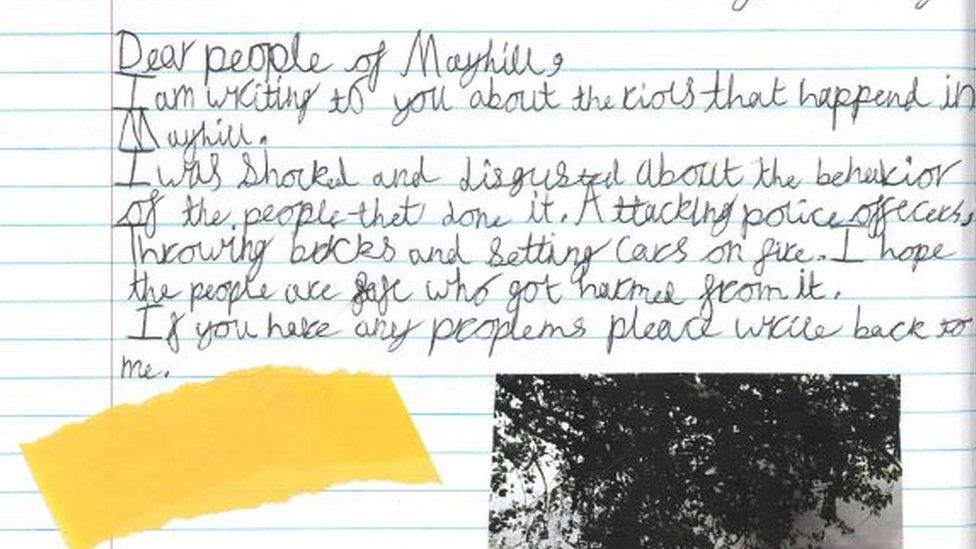 Dear people of Mayhill,
I am writing to you about the riots that happend in
Mayhill.
I was shocked and disgusted about the behavior
of the people that done it. Attacking police officers,
Throwing bricks and setting cars on fire. I hope
the people are safe who got harmed from it.
If you have any proplems please write back to
me.